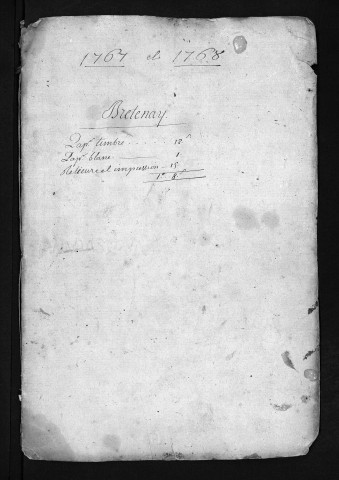 1767 et 1768
Bretenay
Pap. timbre 12ˢ
Pap. blanc 1
Relieure et impression 15
1ᵗ 8ˢ